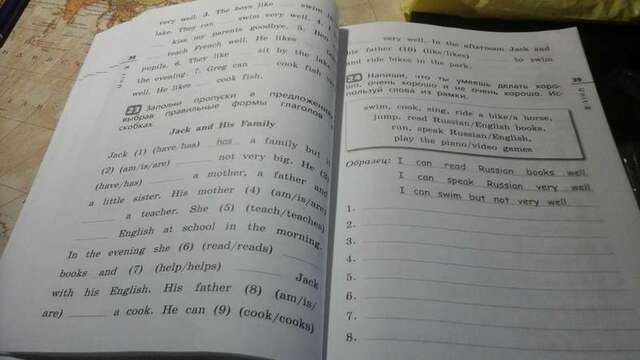 very well. 3. The boys like ______ swim in
lake. They can ______ swim very well. 4.
______ kiss my parents goodbye. 5.
______ teach French well. He likes
pupils. 6. They like ______ sit by the lake
the evening. 7. Greg can ______ cook fish
well. He likes ______ cook fish.
Заполни пропуски в предложениях,
выбрав правильные формы глаголов в
скобках.
Jack and His Family
Jack (1) (have/has) has a family but it
(2) (am/is/are) ______ not very big. He (3)
(have/has) ______ a mother, a father and
a little sister. His mother (4) (am/is/are)
______ a teacher. She (5) (teach/teaches)
______ English at school in the morning.
In the evening she (6) (read/reads) ______
books and (7) (help/helps) ______ Jack
with his English. His father (8) (am/is/
are) ______ a cook. He can (9) (cook/cooks)
______ very well. In the afternoon Jack and
his father (10) (like/likes) ______ to swim
and ride bikes in the park.
39
Напиши, что ты умеешь делать хоро-
шо, очень хорошо и не очень хорошо. Ис-
пользуй слова из рамки.
swim, cook, sing, ride a bike/a horse,
jump, read Russian/English books,
run, speak Russian/English,
play the piano/video games
Образец: I can read Russian books well.
I can speak Russian very well.
I can swim but not very well.
1.
2.
3.
4.
5.
6.
7.
8.